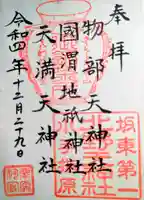 奉拝
坂東第一
北野天神社
物部天神社
國渭地祇神社
天満天神社
令和四年十二月二十九日